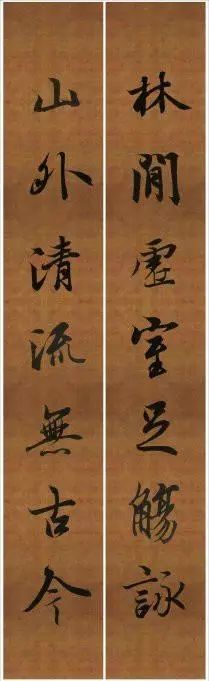 林間虛室足觴詠
山外清流無古今